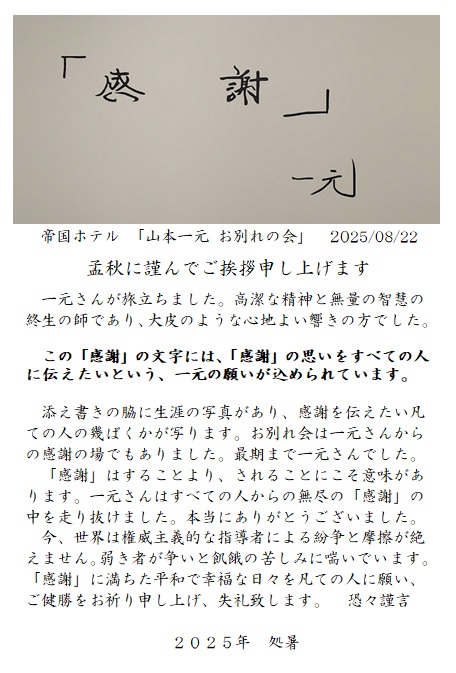 「感 謝」
一元
帝国ホテル 「山本一元 お別れの会」 2025/08/22
孟秋に謹んでご挨拶申し上げます
一元さんが旅立ちました。高潔な精神と無量の智慧の
終生の師であり、大皮のような心地よい響きの方でした。
この「感謝」の文字には、「感謝」の思いをすべての人
に伝えたいという、一元の願いが込められています。
添え書きの脇に生涯の写真があり、感謝を伝えたい凡
ての人の幾ばくかが写ります。お別れ会は一元さんから
の感謝の場でもありました。最期まで一元さんでした。
「感謝」はすることより、されることにこそ意味があ
ります。一元さんはすべての人からの無尽の「感謝」の
中を走り抜けました。本当にありがとうございました。
今、世界は権威主義的な指導者による紛争と摩擦が絶
えません。弱き者が争いと飢餓の苦しみに喘いでいます。
「感謝」に満ちた平和で幸福な日々を凡ての人に願い、
ご健勝をお祈り申し上げ、失礼致します。 恐々謹言
2025年 処暑